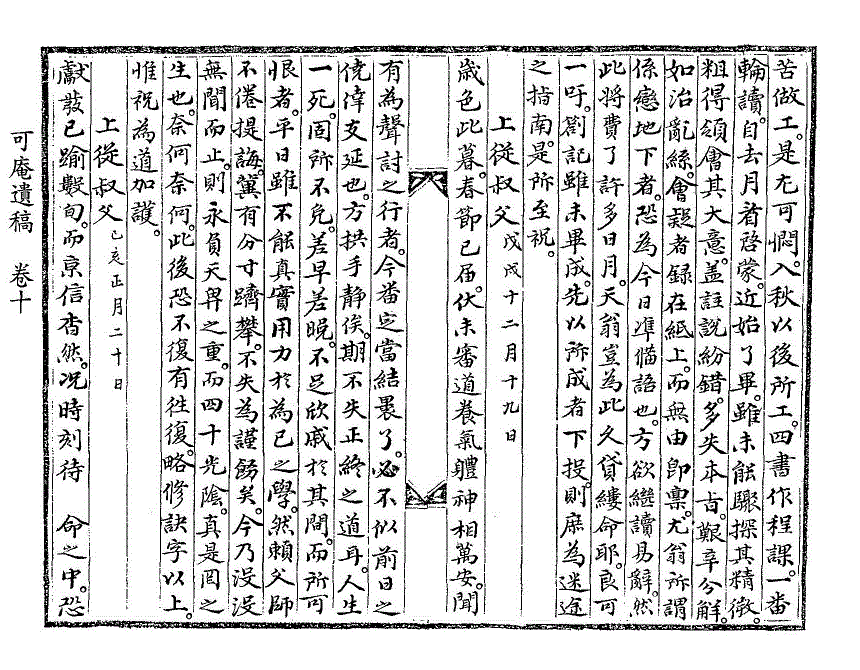 苦做工。是尤可悶。入秋以後所工。四書作程課。一番
輪讀。自去月看啓蒙。近始了畢。雖未能驟探其精微。
粗得領會其大意。蓋註說紛錯。多失本旨。艱辛分解。
如治亂絲。會疑者錄在紙上。而無由卽稟。尤翁所謂
係戀地下者。恐爲今日准備語也。方欲繼讀易辭。然
此將費了許多日月。天翁豈爲此久貸縷命耶。良可
一吁。劄記雖未畢成。先以所成者下投。則庶爲迷途
之指南。是所至祝。
上從叔父 戊戌十二月十九日
歲色此暮。春節已届。伏未審道養氣體神相萬安。聞
有爲聲討之行者。今番定當結裹了。必不似前日之
僥倖支延也。方拱手靜俟。期不失正終之道耳。人生
一死。固所不免。差早差晩。不足欣戚於其間。而所可
恨者。平日雖不能眞實用力於爲己之學。然賴父師
不倦提誨。冀有分寸躋攀。不失爲謹飭矣。今乃沒沒
無聞而止。則永負天畀之重。而四十光陰。眞是罔之
生也。奈何奈何。此後恐不復有往復。略修訣字以上。
惟祝爲道加護。
上從叔父 己亥正月二十日
獻發已踰數旬。而京信杳然。况時刻待 命之中。恐
可庵遺稿 卷十